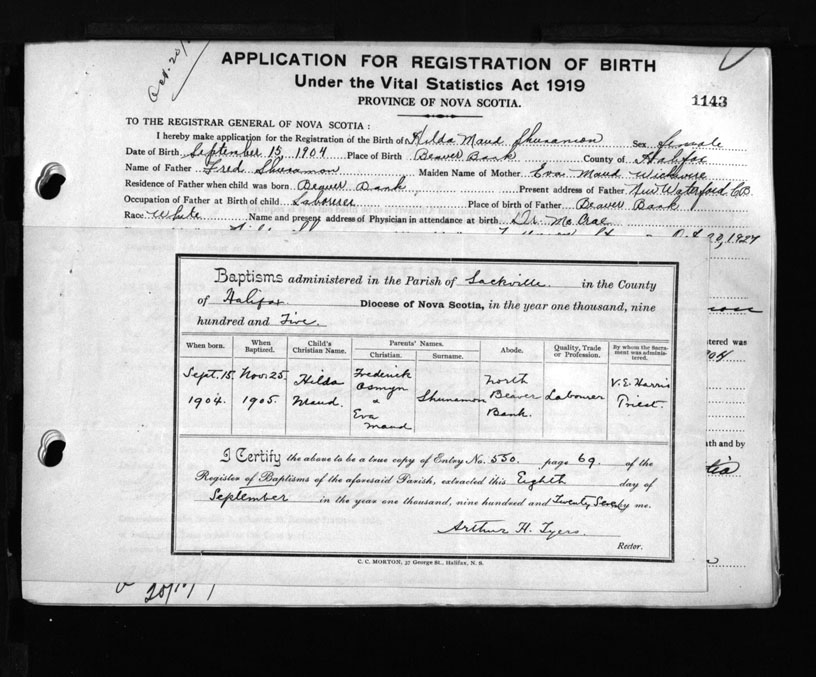 Oct. 20/
APPLICATION FOR REGISTRATION OF BIRTH
Under the Vital Statistics Act 1919
PROVINCE OF NOVA SCOTIA.
1143
TO THE REGISTRAR GENERAL OF NOVA SCOTIA :
I hereby make application for the Registration of the Birth of Hilda Maud Shunamon Sex female
Date of Birth September 15, 1904 Place of Birth Beaver Bank County of Halifax
Name of Father Fred Shunamon Maiden Name of Mother Eva Maud Wickwire
Residence of Father when child was born Beaver Bank Present address of Father New Waterford C.B.
Occupation of Father at Birth of child Labourer Place of birth of Father Beaver Bank
Race White Name and present address of Physician in attendance at birth Dr. McCrae
1927
Baptisms administered in the Parish of Sackville in the County
of Halifax. Diocese of Nova Scotia, in the year one thousand, nine
hundred and Five.
When born. When Baptized. Child's Christian Name. Parents' Names. Christian. Surname. Abode. Quality, Trade or Profession. By whom the Sacrament was administered.
Sept. 15 1904. Nov. 25 1905. Hilda Maud. Frederick Osmyn & Eva Maud Shunamon North Beaver Bank. Labourer V.E. Harris Priest.
I Certify the above to be a true copy of Entry No. 550. page 69. of the
Register of Baptisms of the aforesaid Parish, extracted this Eighth day of
September in the year one thousand, nine hundred and Twenty Seven by me.
Arthur H. Tyers.
Rector.
C. C. MORTON, 37 George St., Halifax, N. S.